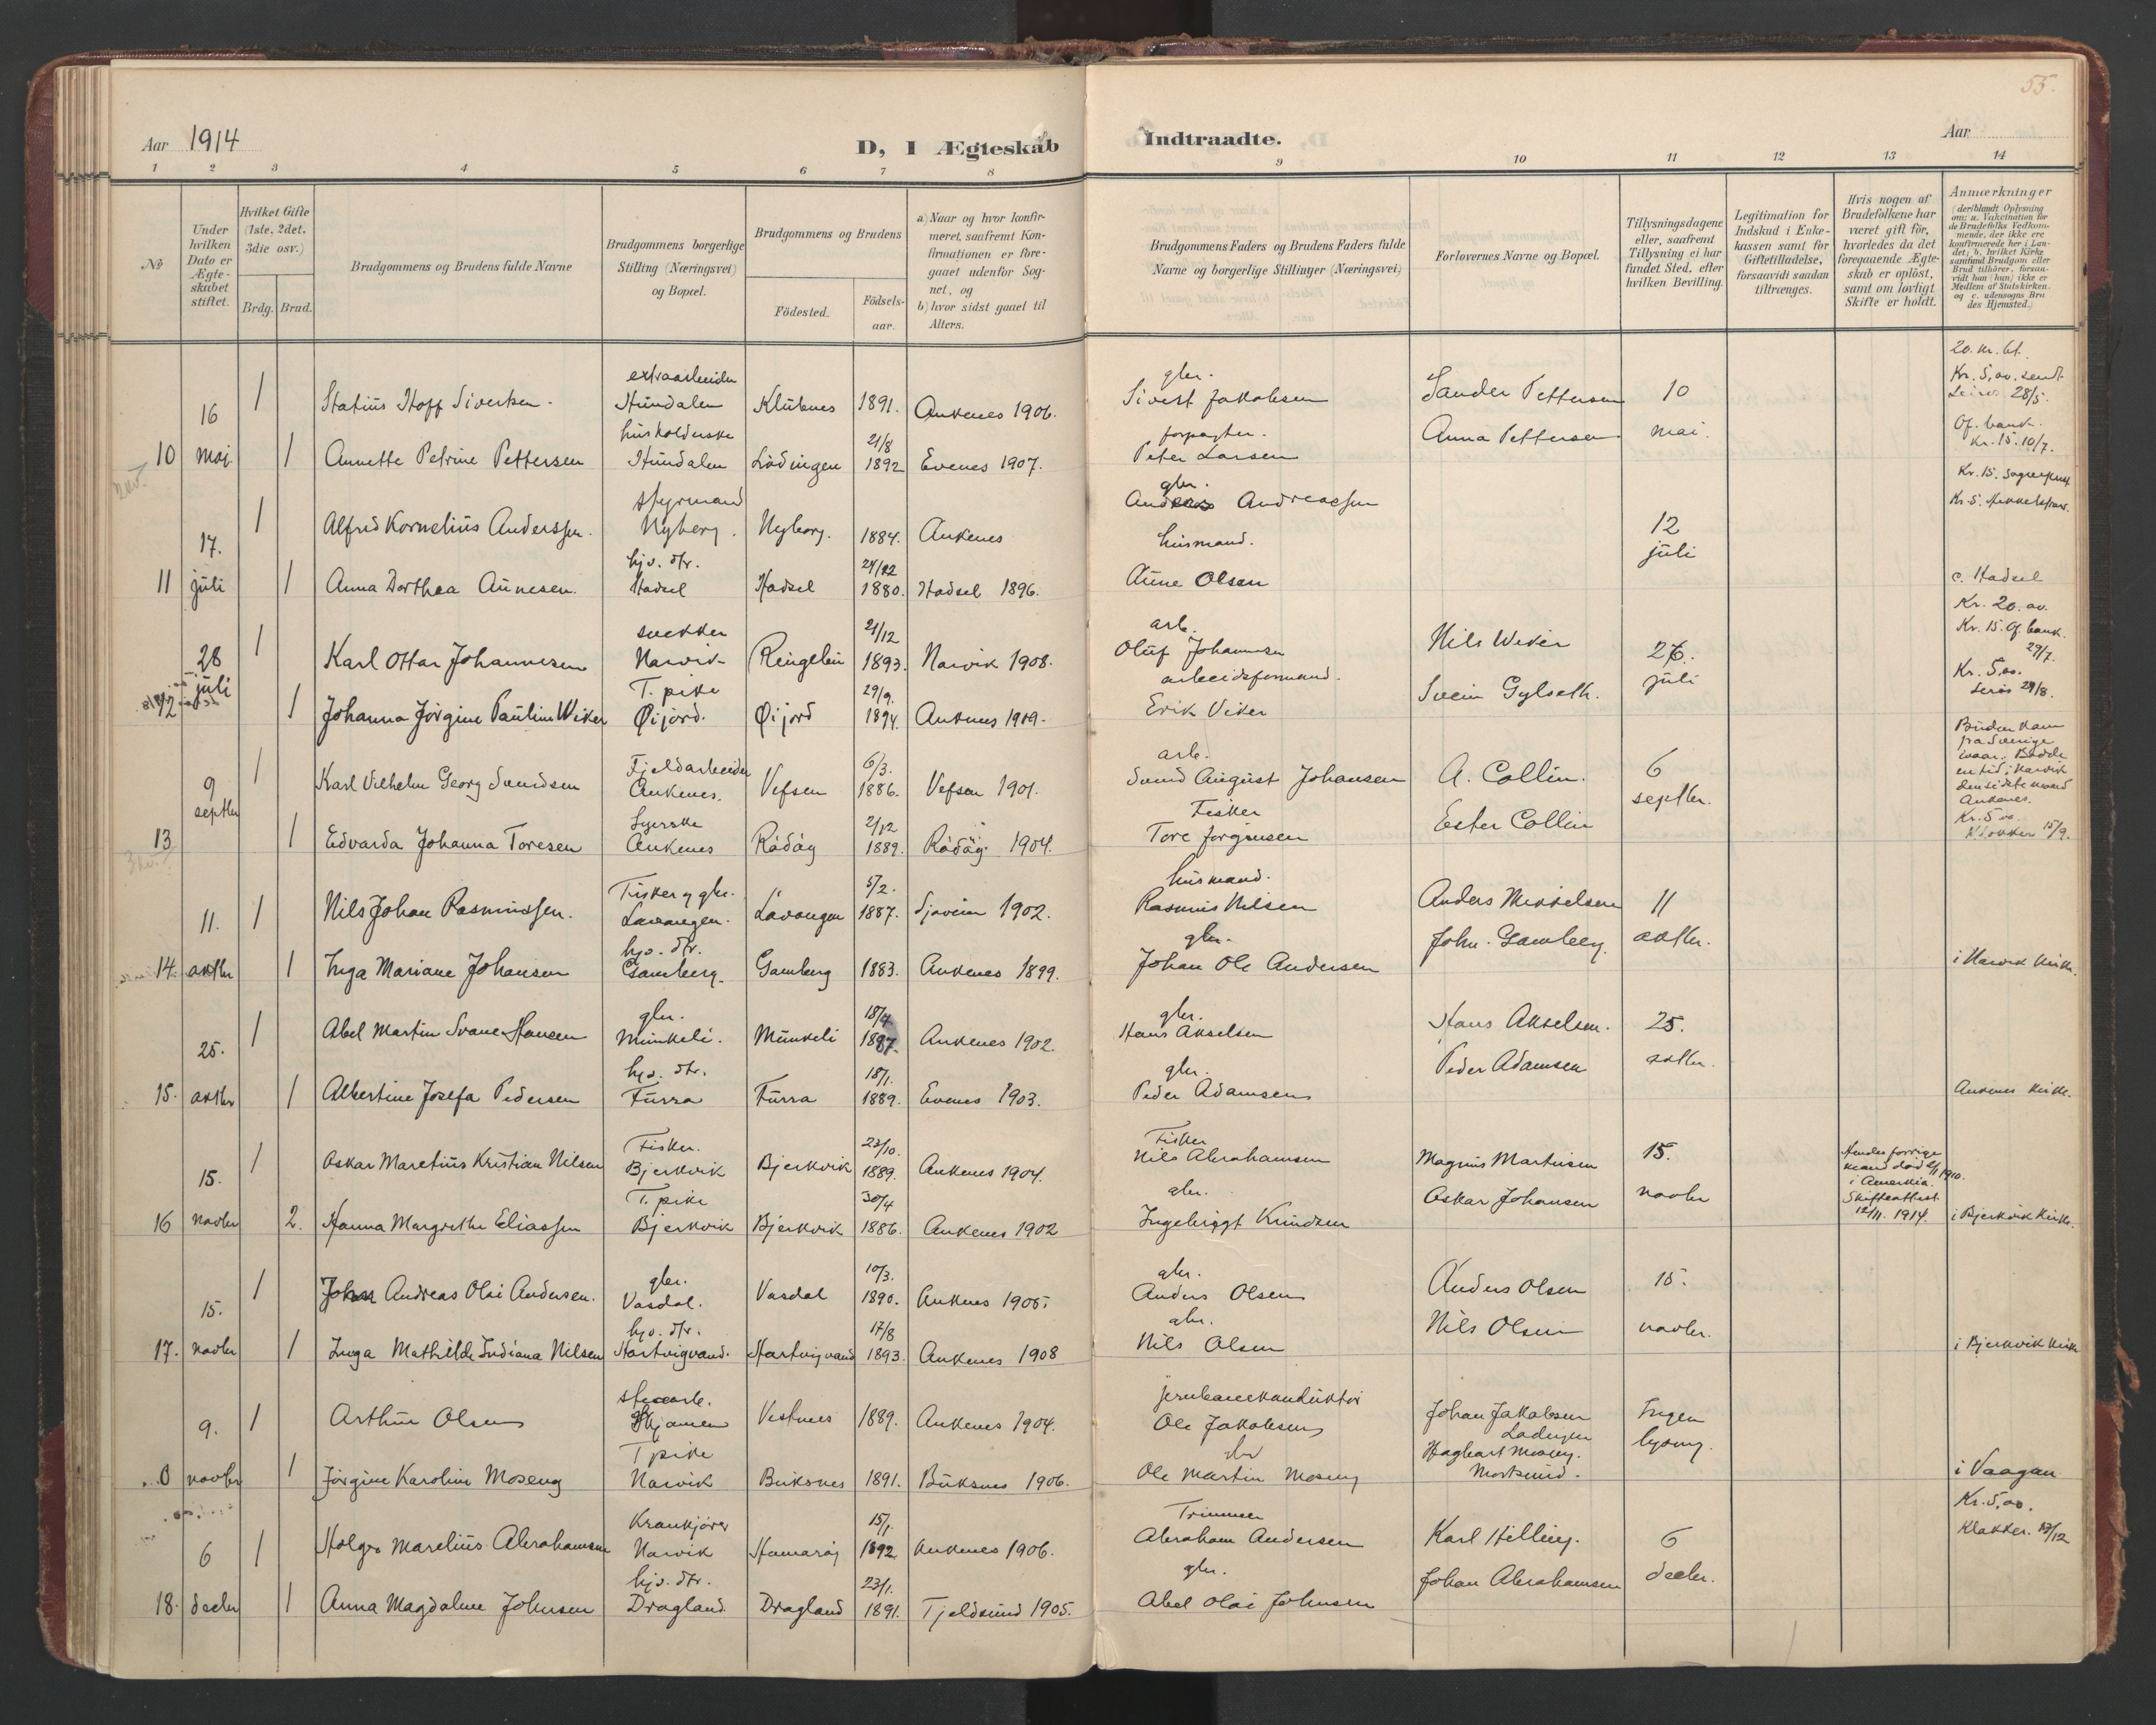 55.
Aar 1914
D, I Ægteskab Indtraadte.
Aar
1 2 3 4 5 6 7 8 9 10 11 12 13 14
No
Under hvilken Dato er Ægteskabet stiftet.
Hvilket Gifte (1ste, 2det, 3die osv.)
Brdg. Brud.
Brudgommens og Brudens fulde Navne
Brudgommens borgerlige Stilling (Næringsvei) og Bopæl.
Brudgommens og Brudens
Födested.
Födselsaar.
a) Naar og hvor konfirmeret, saafremt Konfirmationen er foregaaet udenfor Sognet, og
b) hvor sidst gaaet til Alters.
Brudgommens Faders og Brudens Faders fulde Navne og borgerlige Stillinger (Næringsvei)
Forlovernes Navne og Bopæl.
Tillysningsdagene eller, saafremt Tillysning ei har fundet Sted, efter hvilken Bevilling.
Legitimation for Indskud i Enkekassen samt for Giftetilladelse, forsaavidt saadan tiltrænges.
Hvis nogen af Brudefolkene har været gift för, hvorledes da det foregaaende Ægteskab er oplöst, samt om lovligt Skifte er holdt.
Anmærkninger
(deriblandt Oplysning om: a. Vakcination for de Brudefolks Vedkommende, der ikke ere konfirmerede her i Landet; b. hvilket Kirkesamfund Brudgom eller Brud tilhörer, forsaavidt hun (han) ikke er Medlem af Statskirken. og c. udensogns Brudes Hjemsted.)
extraarbeider gbr. 20. kr. bt.
16 1 Statius Hoff Sivertsen. Hundalen Klubnes 1891. Ankenes 1906. Sivert Jakobsen Sander Pettersen 10 Kr. 5,00. sendt 28/5.
husholderske 21/8 forpagter. Of. bank. Kr. 15. 10/7.
10 maj. 1 Annette Petrine Pettersen Hundalen Lödingen 1892 Evenes 1907. Peter Larsen Anna Pettersen mai.
styrmand gbr. Kr. 15.
17. 1 Alfred Kornelius Anderssen. Nyberg. Nyborg. 1884. Ankenes Anders Andreassen 12 Kr. 5.
hjv. dtr. 24/12 husmand. juli
11 juli 1 Anna Dorthea Aunesen. Hadsel Hadsel 1880. Hadsel 1896. Aune Olsen c. Hadsel
snekker 21/12 arb. Kr. 20. av. Kr. 15. Of. bank. 29/7.
28 1 Karl Ottar Johannesen Narvik Ringebu 1893. Narvik 1908. Oluf Johannesen Nils Wiker 26. Kr. 5,00.
T. pike 29/9. arbeidsformand.
12 juli 1 Johanna Jörgine Pauline Wiker Öijord. Öijord 1894. Ankenes 1909. Erik Viker Svein Gylseth. juli 29/8.
Fjeldarbeider 6/3. arb. Bruden kom fra Sverige ivaar. Bodde en tid i Narvik den sidste maaned Ankenes.
9 1 Karl Vilhelm Georg Svendsen Ankenes. Vefsen 1886. Vefsen 1901. Svend August Johansen A. Collin. 6
septbr Syerske 2/12 Fisker septbr. Kr. 5 00 Klokker 15/9.
13 1 Edvarda Johanna Toresen Ankenes Rödöy 1889. Rödöy. 1904. Tore Jorgensen Ester Collin
Fisker og gbr. 5/2. husmand.
11. 1 Nils Johan Rasmussen. Lavangen. Lavangen 1887. Sjøvein 1902. Rasmus Nilsen Anders Mikkelsen 11
hjv. dtr. gbr.
14. oktbr 1 Inga Mariane Johansen Gamberg. Gamberg 1883. Ankenes 1899. Johan Ole Andersen John. Gamberg. oktbr. i Narvik kirke.
gbr. 18/4 gbr.
25. 1 Abel Martin Svane Hansen Munkeli. Munkeli 1887. Ankenes 1902. Hans Akselsen Hans Akselsen. 25.
hjv. dtr. 18/1. gbr.
15. oktbr 1 Albertine Josefa Pedersen Furra Furra 1889. Evenes 1903. Peder Adamsen Peder Adamsen oktbr. Ankenes kirke.
Fisker. 23/10. Fisker
15. 1 Oskar Maretius Kristian Nilsen Bjerkvik Bjerkvik 1889. Ankenes 1904. Nils Abrahamsen Magnus Martinsen 15. Hendes forrige mand död 1910. i Amerika. Skifteattest 12/11. 1914.
T. pike 30/4 gbr.
16 novbr 2. Hanna Margrethe Eliassen Bjerkvik Bjerkvik 1886. Ankenes 1902 Ingebrigt Knudsen Oskar Johansen novbr i Bjerkvik kirke.
gbr. 10/3. gbr.
15. 1 Johan Andreas Olai Andersen. Vasdal. Vasdal 1890. Ankenes 1905. Anders Olsen Anders Olsen 15.
hjv. dtr. 17/8 gbr.
17. novbr 1 Inga Mathilde Indiana Nilsen Hartvigvand. Hartvigvand 1893. Ankenes 1908 Nils Olsen Nils Olsen novbr. i Bjerkvik kirke
jernbanekonduktör
9. 1 Arthur Olsen Skjomen Vestnes 1889. Ankenes 1904. Ole Jakobsen Johan Jakobsen Ingen
T pike gbr Hagbart Moseng. lysning.
novbr 1 Jörgine Karoline Moseng Narvik Buksnes 1891. Buksnes 1906. Ole Martin Moseng Mortsund. i Vaagan
Krankjörer 15/1. Trimmer Kr. 5,00.
6 1 Holger Marelius Abrahamsen Narvik Hamaröj 1892 Ankenes 1906. Abraham Andersen Karl Hilling. 6 Klokker. /12
hjv. dtr. 23/1. gbr.
18. decbr 1 Anna Magdalene Johnsen Dragland. Dragland 1891. Tjeldsund 1905. Abel Olai Johnsen Johan Abrahamsen decbr.